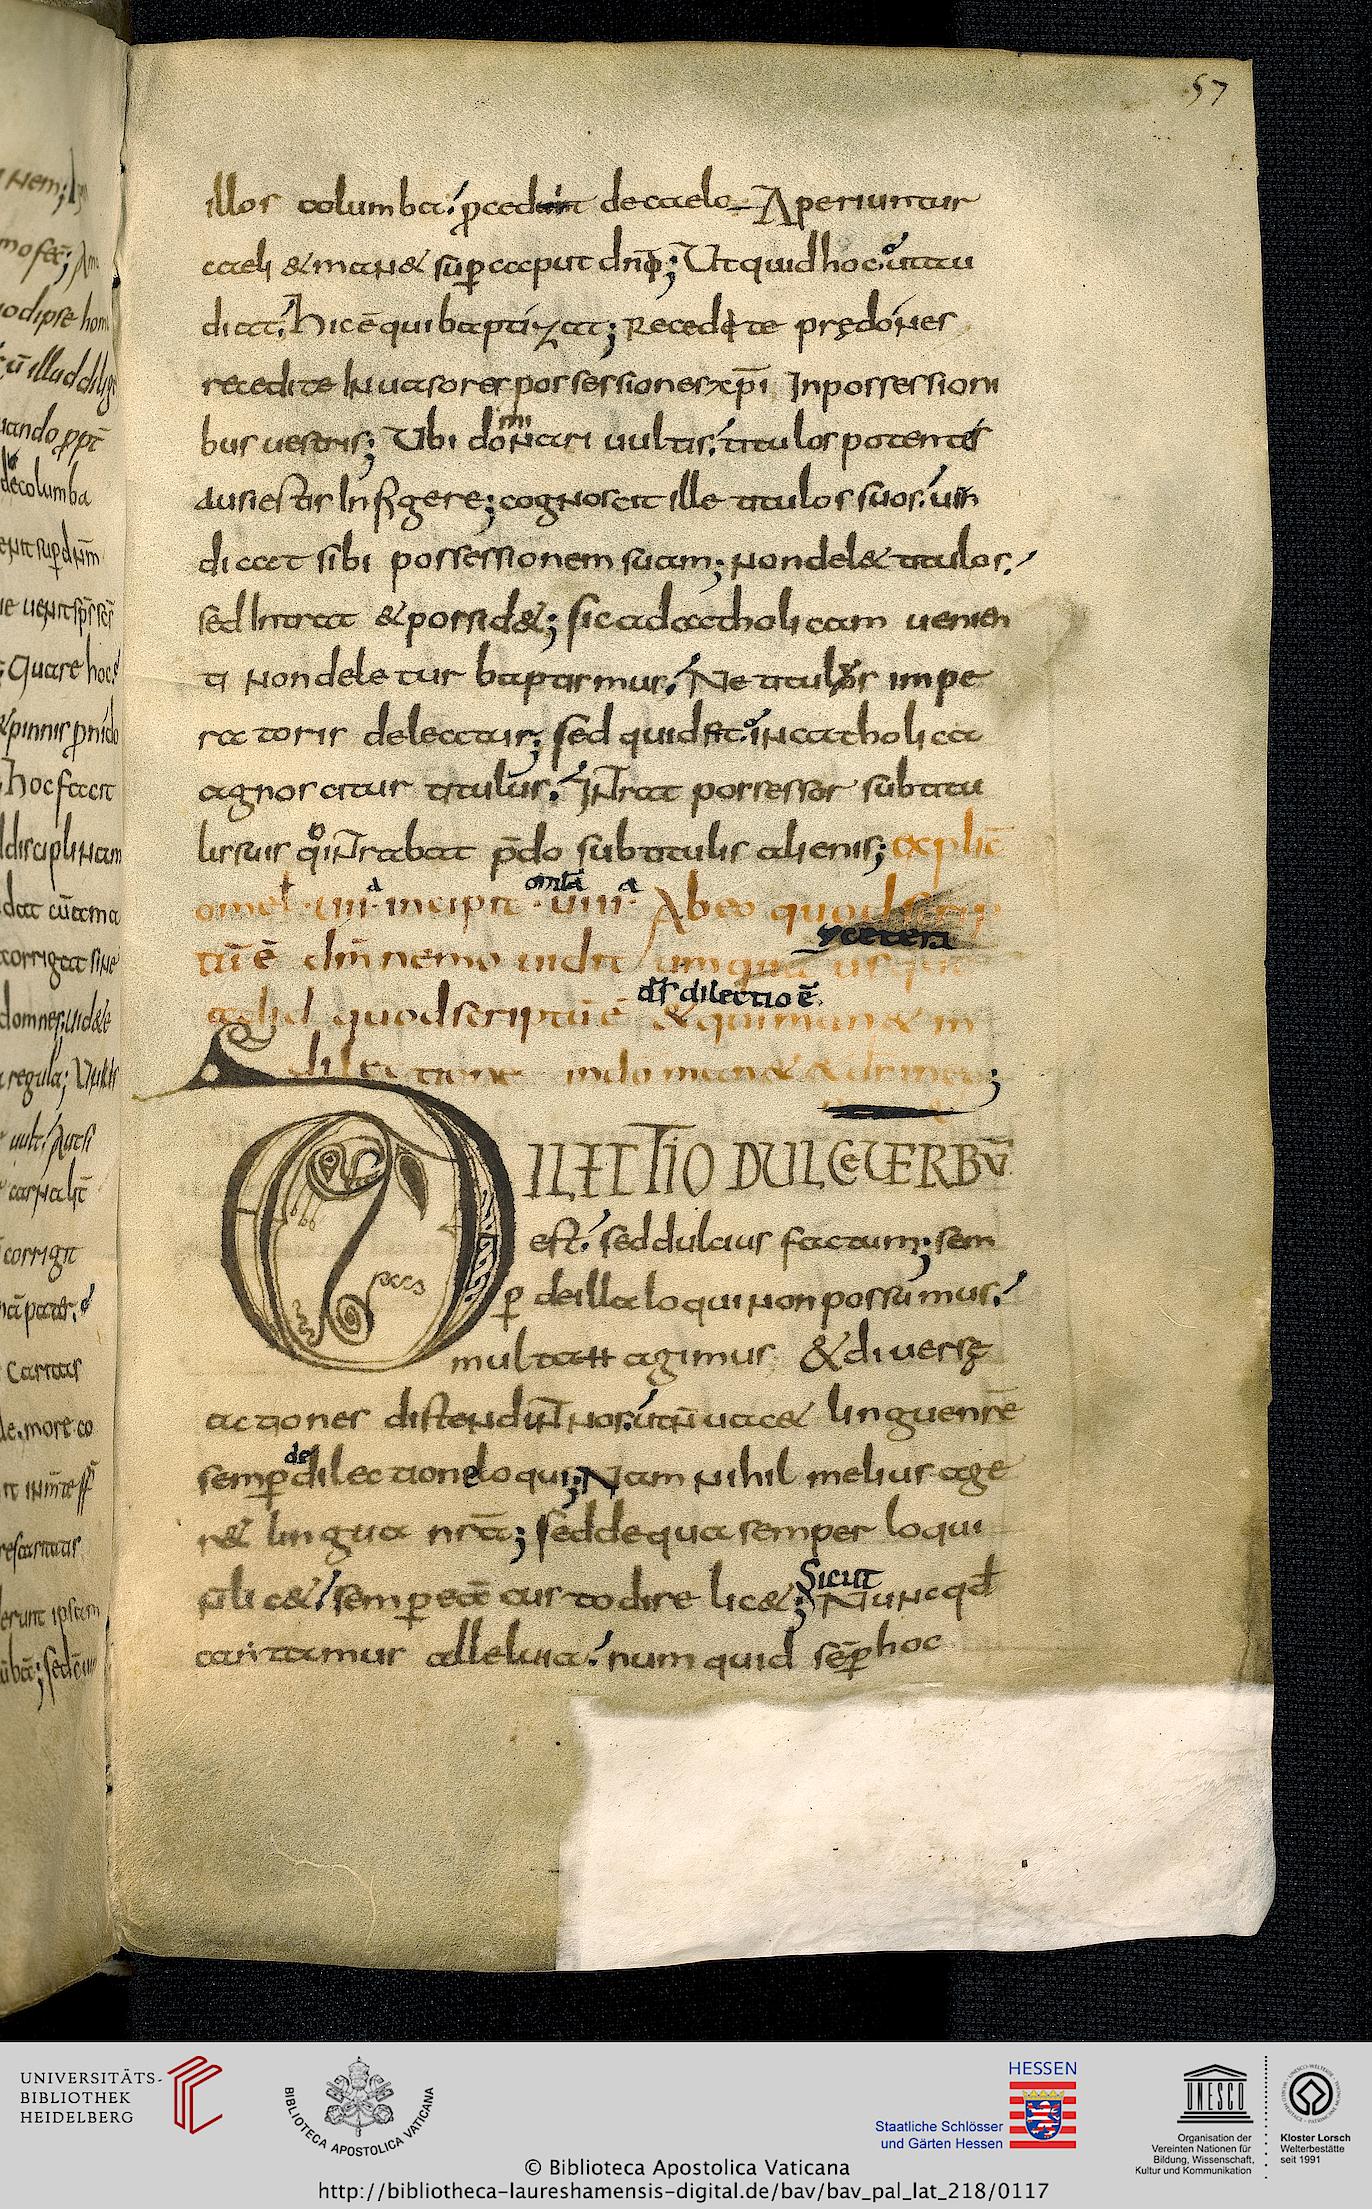 57
illos columba; p̱cedit de caelo Aperiuntur
caeli & man& sup̱ caput dn̄i; Ut quid hoc ut tu
dicat, hic ē qui baptizat; Recedite prędones
recedite Inuasores possessiones xp̄i Inpossessioni
bus uestris; Ubi dominari uultis; titulos potentis
ausi estis Infigere; cognoscit ille titulos suos; uin
dicat sibi possessionem suam; non del& titulos;
sed Intrat & possid&; sic ad catholicam uenien
ti non deletur baptismus; Ne titulus impe
ratoris deleatur; sed quid fit in catholica
agnoscitur titulus; INtrat possessor sub titu
lis suis quo iNtrabat p̄do sub titulis alienis; explic̄
omel· ·uii· incipit omlā ·uiii· Ab eo quod scrip
ycetera
tū ē dm̄ nemo uidit umquā usque
d̄s dilectio ē
ad id quod scriptū ē & qui man& in
dilectione in dō man& & ds̄ in eo;
DILECTIO DULCE UERBŪ
est; sed dulcius factum; sem
p̱ de illa loqui non possumus;
multa H agimus & diuersę
actiones distendūN nos; ut n̄ uac& linguę nr̄e
semp̱ de dilectione loqui; Nam nihil melius age
r& lingua nr̄a; sed de qua semper loqui
n̄ lic&; semp̱ eā custodire lic&; Sicut Nunc qd̄
cantamus alleluia; numquid sēp̱ hoc
UNIVERSITÄTS-
BIBLIOTHEK
HEIDELBERG
BIBLIOTECA APOSTOLICA VATICANA
HESSEN
Staatliche Schlösser
und Gärten Hessen
UNESCO
Organisation der
Vereinten Nationen für
Bildung, Wissenschaft,
Kultur und Kommunikation
Kloster Lorsch
Welterbestätte
seit 1991
© Biblioteca Apostolica Vaticana
http://bibliotheca-laureshamensis-digital.de/bav/bav_pal_lat_218/0117